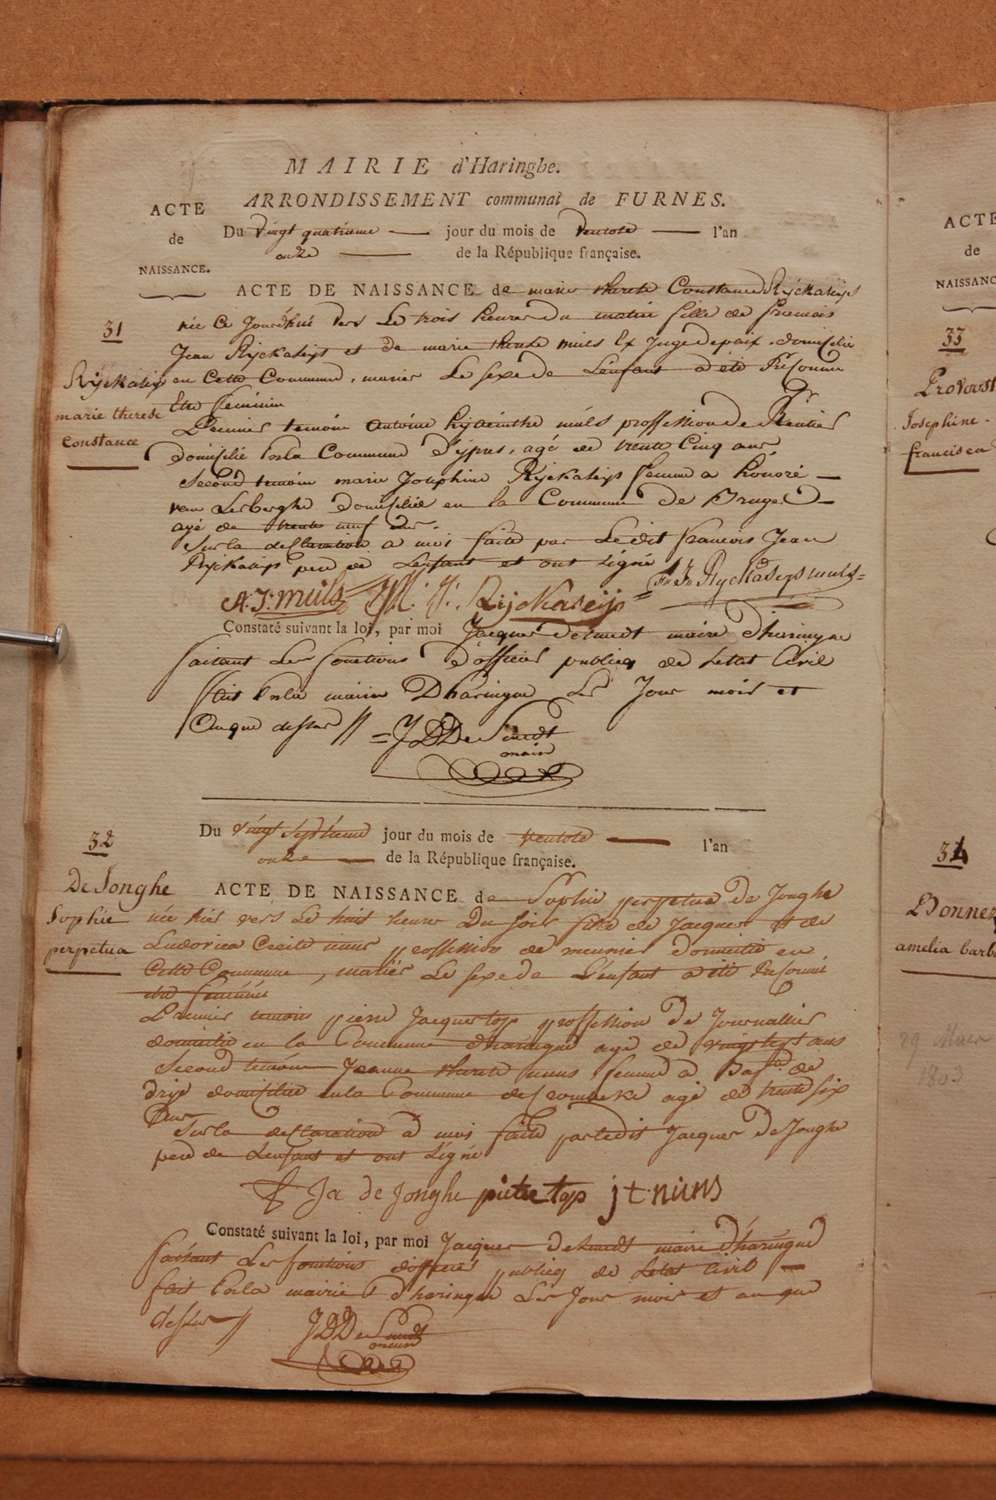 MAIRIE d'Haringhe.
ARRONDISSEMENT communal de FURNES.
ACTE
de
NAISSANCE.
Du vingt quatrieme jour du mois de ventose l'an
onze de la République française.
31
Ryckaseys
marie therese
Constance
ACTE DE NAISSANCE de marie therese Constance Ryckaseys
née Ce Jourdhui vers Le trois heures du matin fille de francois
Jean Ryckaseys et de marie therese muls Ex Juge de paix, domicilié
en Cette Commune, marier Le sexe de Lenfant a été
Etre feminin
Premier temoin antoine hyacinthe muls proffession de Rentier
domicilié dans la Commune d'ypres, agé de trente Cinq ans
Second temoin marie Josephine Ryckaseys femme a honoré
van Lerberghe domiciliée en la Commune de Bruges
agé de trente neuf ans.
Sur la declaration a moi faite par Ledit francois Jean
Ryckaseys pere de Lenfant et ont signé
A.J: muls M: J: Rijckaseijs F: J: Ryckaseys muls
Constaté suivant la loi, par moi Jacques desmedt maire d'haringhe
faisant Les fonctions d'officier publicq de Letat Civil
fait dans la mairie D'haringue Les Jour mois et
an que dessus // = J D De Smedt
maire
32
De Jonghe
Sophie
perpetua
Du vingt septieme jour du mois de ventose l'an
onze de la République française.
ACTE DE NAISSANCE de Sophie perpetua de Jonghe
née hier vers Le huit heure Du soir fille de Jacques et de
Ludovica Cecile nuns proffession de meunier domicilié en
Cette Commune, mariés Le sexe de Lenfant a été
etre feminin
Premier temoin pierre Jacques top proffession de Journallier
domicilié en la Commune d'haringue agé de vingt sept ans
Second temoin Jeanne therese nuns femme a de
drije domiciliée en la Commune de Crombeke agé de trente six
ans
Sur la declaration a moi faite par Ledit Jacques De Jonghe
pere de Lenfant et ont signé
Ja de Jonghe pieter top j t nuns
Constaté suivant la loi, par moi Jacques desmedt maire d'haringue
faisant Les fonctions d'officier publicq de Letat Civil
fait dans la mairie d'haringue Les Jour mois et an que
dessus // J D De Smedt
maire
ACTE
de
NAISSANC
33
Provoost
Josephine
francisca
34
amelia barb
29 Mars
1803